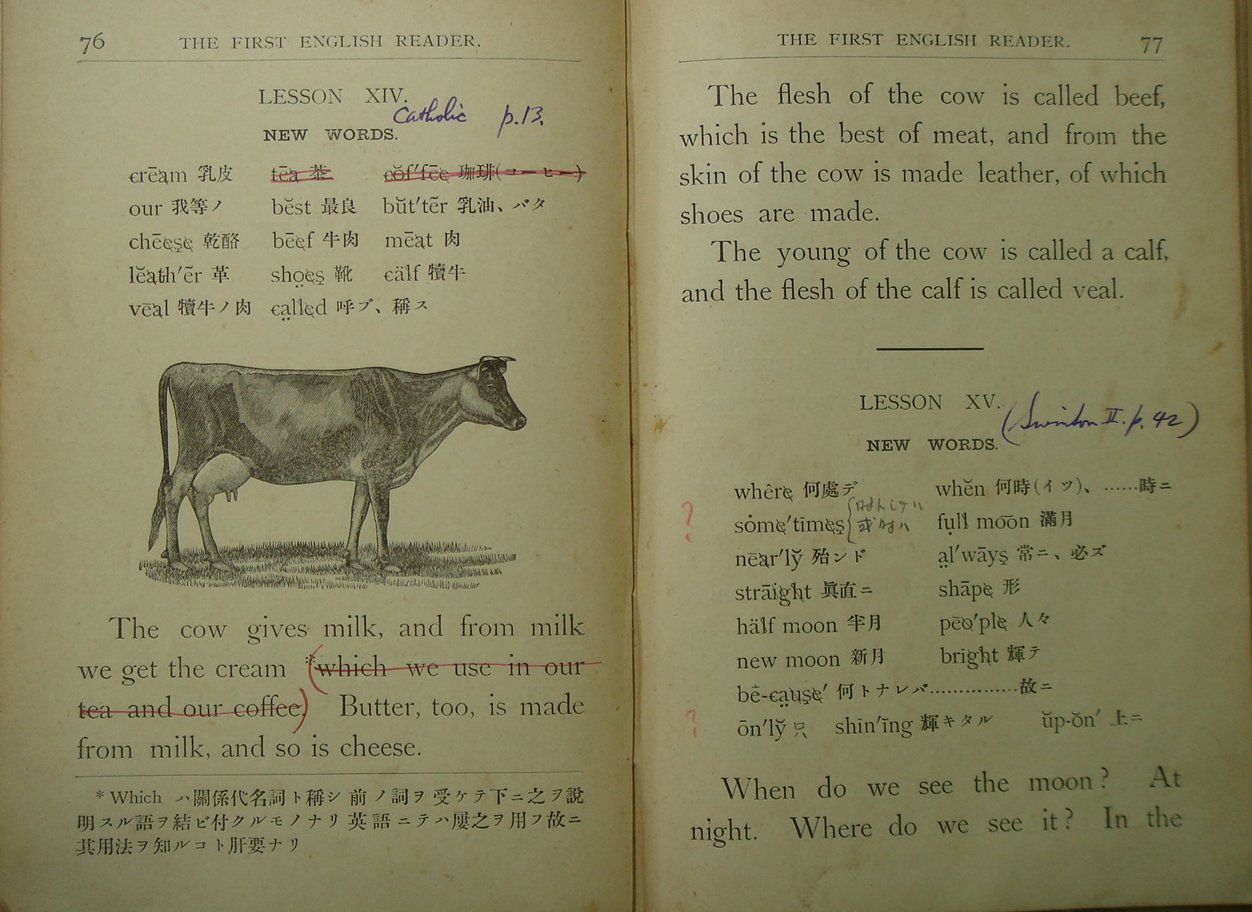 76 THE FIRST ENGLISH READER.
LESSON XIV.
Catholic p.13.
NEW WORDS.
crēam 乳皮 tēa 茶 cŏf′fēe 珈琲(コーヒー)
our 我等ノ bĕst 最良 bŭt′tẽr 乳油、バタ
chēeṣe 乾酪 bēef 牛肉 mēat 肉
lĕath′ẽr 革 shoeṣ 靴 cälf 犢牛
vēal 犢牛ノ肉 ca̤lled 呼ブ、稱ス
The cow gives milk, and from milk
we get the cream *(which we use in our
tea and our coffee.) Butter, too, is made
from milk, and so is cheese.
* Which ハ關係代名詞ト稱シ前ノ詞ヲ受ケテ下ニ之ヲ說
明スル語ヲ結ビ付クルモノナリ英語ニテハ屢之ヲ用フ故ニ
其用法ヲ知ルコト肝要ナリ
THE FIRST ENGLISH READER. 77
The flesh of the cow is called beef,
which is the best of meat, and from the
skin of the cow is made leather, of which
shoes are made.
The young of the cow is called a calf,
and the flesh of the calf is called veal.
LESSON XV.
(Swinton II. p. 42)
NEW WORDS.
whêre 何處デ whĕn 何時(イツ)、……時ニ
? sȯme′tīmeṣ 或時ハ fụll mōōn 滿月
nēar′lў 殆ンド a̤l′wāyṣ 常ニ、必ズ
strāight 眞直ニ shāpe 形
hälf moon 半月 pēo′ple 人々
new moon 新月 brīght 輝テ
bē-ca̤uṣe′ 何トナレバ……………故ニ
? ōn′lў 只 shīn′ĭng 輝キタル ŭp-ŏn′ 上ニ
When do we see the moon? At
night. Where do we see it? In the